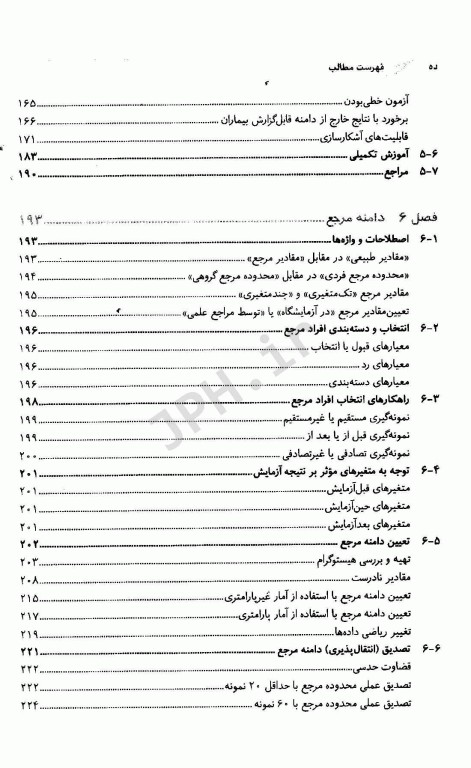 ده فهرست مطالب
آزمون خطی‌بودن ۱۶۵
برخورد با نتایج خارج از دامنه قابل‌گزارش بیماران ۱۶۶
قابلیت‌های آشکارسازی ۱۷۱
۵-۶ آموزش تکمیلی ۱۸۳
۵-۷ مراجع ۱۹۰
فصل ۶ دامنه مرجع ۱۹۳
۶-۱ اصطلاحات و واژه‌ها ۱۹۳
«مقادیر طبیعی» در مقابل «مقادیر مرجع» ۱۹۳
«محدوده مرجع فردی» در مقابل «محدوده مرجع گروهی» ۱۹۴
مقادیر مرجع «تک‌متغیری» و «چندمتغیری» ۱۹۵
تعیین‌مقادیر مرجع «در آزمایشگاه» یا «توسط مراجع علمی» ۱۹۵
۶-۲ انتخاب و دسته‌بندی افراد مرجع ۱۹۶
معیارهای قبول یا انتخاب ۱۹۶
معیارهای رد ۱۹۶
معیارهای دسته‌بندی ۱۹۶
۶-۳ راهکارهای انتخاب افراد مرجع ۱۹۸
نمونه‌گیری مستقیم یا غیرمستقیم ۱۹۹
نمونه‌گیری قبل از یا بعد از ۱۹۹
نمونه‌گیری تصادفی یا غیرتصادفی ۲۰۰
۶-۴ توجه به متغیرهای مؤثر بر نتیجه آزمایش ۲۰۱
متغیرهای قبل‌آزمایش ۲۰۱
متغیرهای حین‌آزمایش ۲۰۱
متغیرهای بعدآزمایش ۲۰۱
۶-۵ تعیین دامنه مرجع ۲۰۲
تهیه و بررسی هیستوگرام ۲۰۳
مقادیر نادرست ۲۰۸
تعیین دامنه مرجع با استفاده از آمار غیرپارامتری ۲۱۵
تعیین دامنه مرجع با استفاده از آمار پارامتری ۲۱۷
تغییر ریاضی داده‌ها ۲۱۹
۶-۶ تصدیق (انتقال‌پذیری) دامنه مرجع ۲۲۱
قضاوت حدسی ۲۲۲
تصدیق عملی محدوده مرجع با حداقل ۲۰ نمونه ۲۲۲
تصدیق عملی محدوده مرجع با ۶۰ نمونه ۲۲۴
JPH.ir